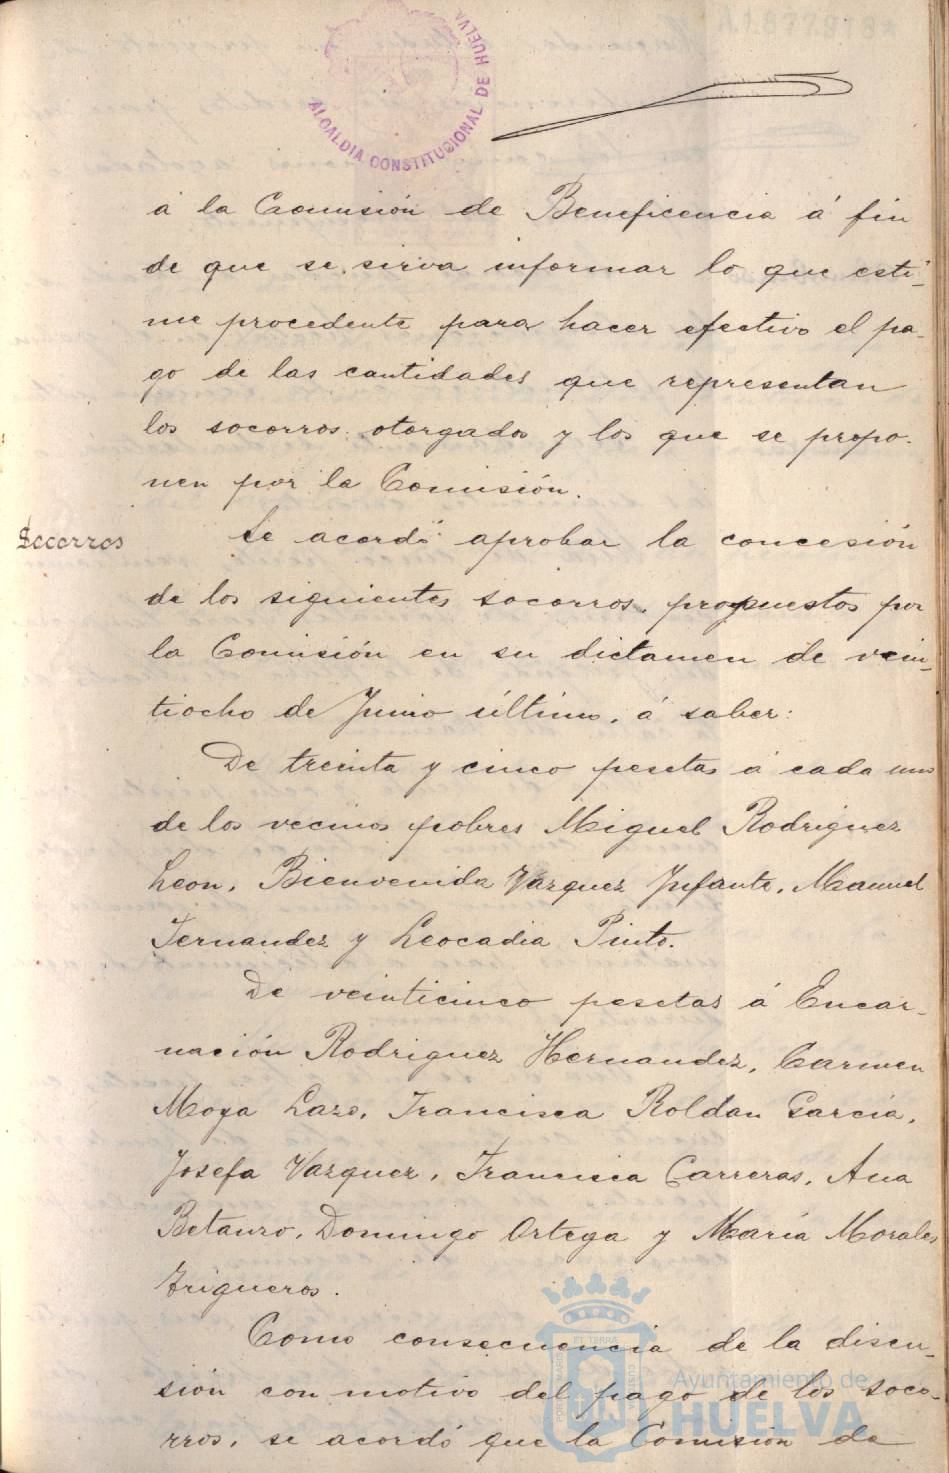 A.1.877.818*
ALCALDIA CONSTITUCIONAL DE HUELVA
á la Comisión de Beneficencia á fin
de que se sirva informar lo que esti-
me procedente para hacer efectivo el pa-
go de las cantidades que representan
los socorros otorgados y los que se propo-
nen por la Comisión.
Socorros
Se acordó aprobar la concesión
de los siguientes socorros propuestos por
la Comisión en su dictamen de vein-
tiocho de Junio último, á saber:
De treinta y cinco pesetas á cada uno
de los vecinos pobres Miguel Rodriguez
Leon, Bienvenida Vazquez Infante, Manuel
Fernandez y Leocadia Pinto.
De veinticinco pesetas á Encar-
nación Rodriguez Hernandez, Carmen
Moya Lazo, Francisca Roldan García,
Josefa Vazquez, Francisca Carreras, Ana
Betanzo, Domingo Ortega y María Morales
Trigueros.
Como consecuencia de la discu-
sión con motivo del pago de los soco-
rros, se acordó que la Comisión de
Ayuntamiento de
HUELVA